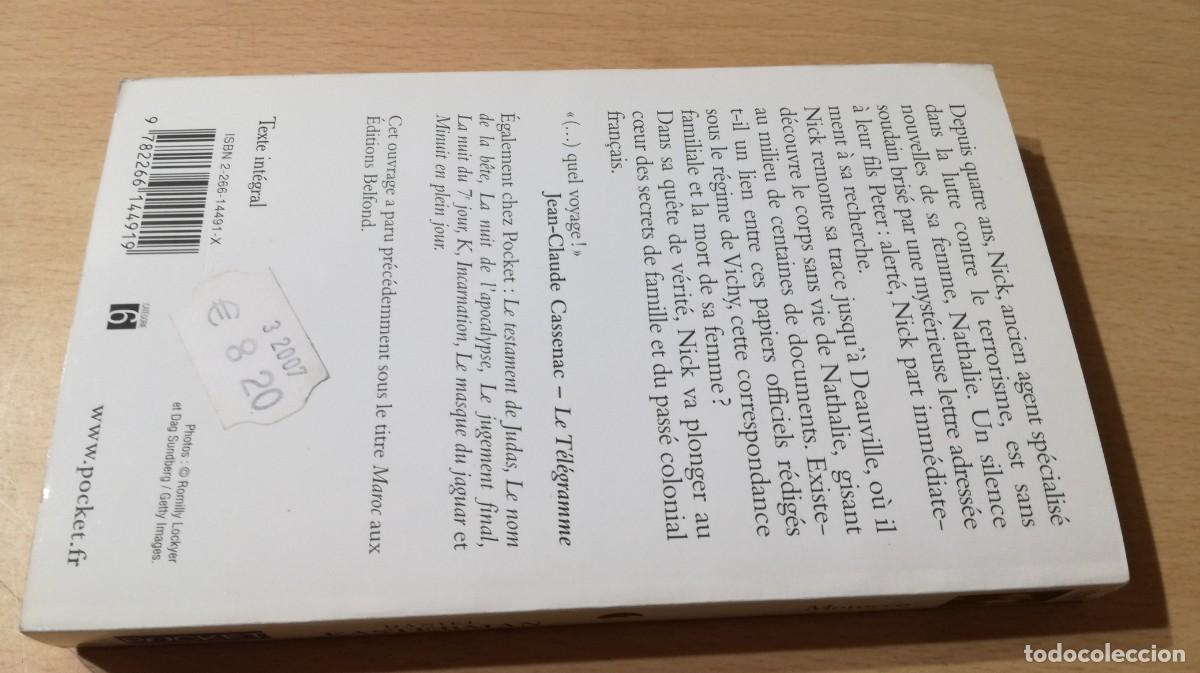 Depuis quatre ans, Nick, ancien agent spécialisé
dans la lutte contre le terrorisme, est sans
nouvelles de sa femme, Nathalie. Un silence
soudain brisé par une mystérieuse lettre adressée
à leur fils Peter : alerté, Nick part immédiate-
ment à sa recherche.
Nick remonte sa trace jusqu'à Deauville, où il
découvre le corps sans vie de Nathalie, gisant
au milieu de centaines de documents. Existe-
t-il un lien entre ces papiers officiels rédigés
sous le régime de Vichy, cette correspondance
familiale et la mort de sa femme ?
Dans sa quête de vérité, Nick va plonger au
cœur des secrets de famille et du passé colonial
français.
« (...) quel voyage ! »
Jean-Claude Cassenac – Le Télégramme
Également chez Pocket : Le testament de Judas, Le nom
de la bête, La nuit de l'apocalypse, Le jugement final,
La nuit du 7e jour, K, Incarnation, Le masque du jaguar et
Minuit en plein jour.
Cet ouvrage a paru précédemment sous le titre Maroc aux
Éditions Belfond.
Texte intégral
ISBN 2-266-14491-X
9 782266 144919
CATÉGORIE
6
3 2007
€ 8 20
Photos : © Romilly Lockyer
et Dag Sundberg / Getty Images.
www.pocket.fr
POCKET
todocoleccion